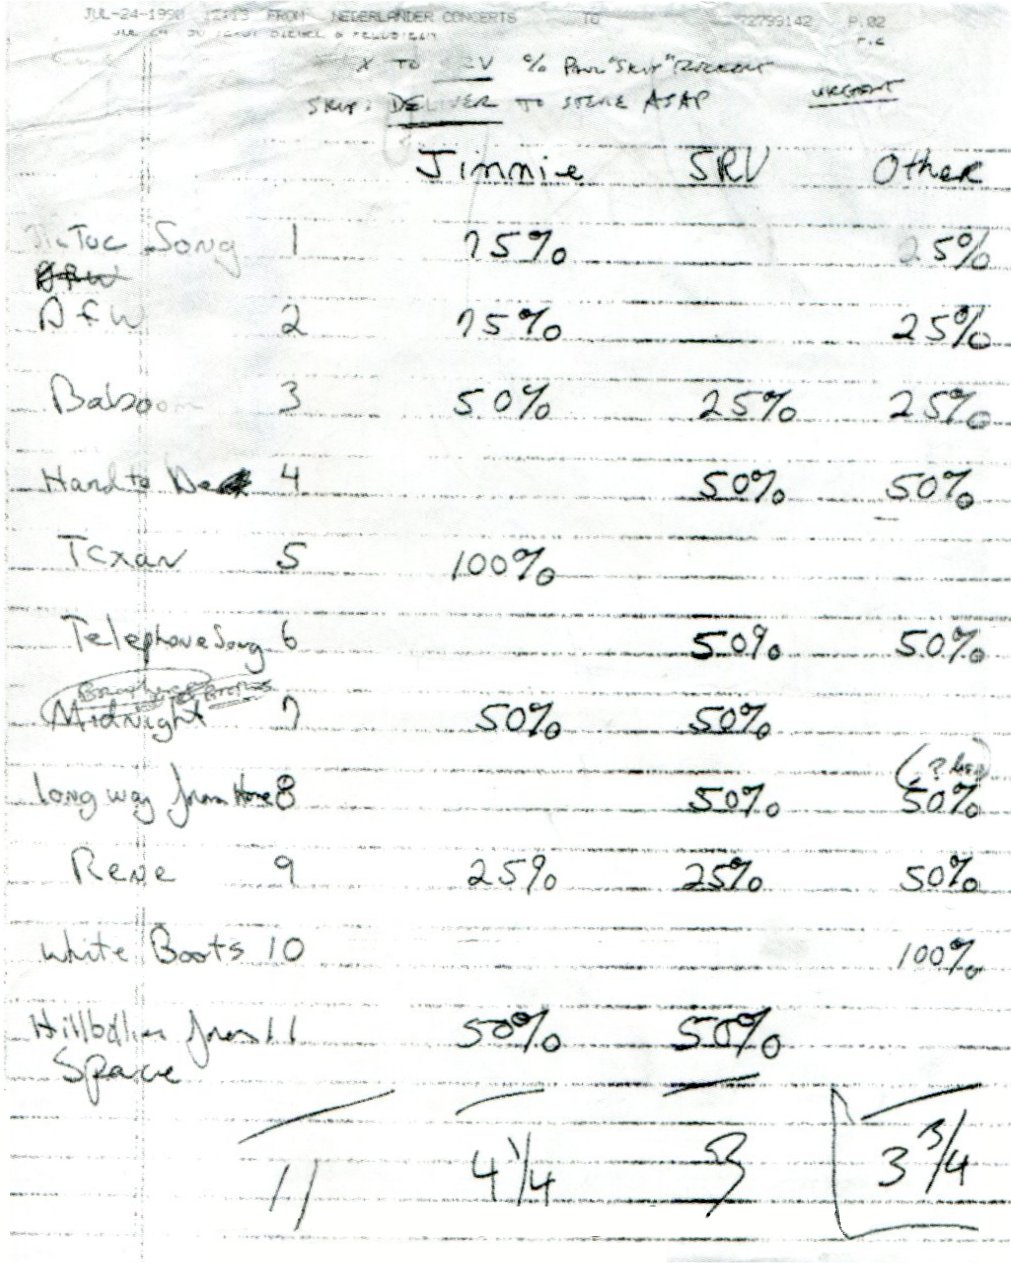 JUL-24-1990 12:13 FROM NEDERLANDER CONCERTS TO 72799142 P.02
% Paul "Skip"
Skip: DELIVER TO STEVE ASAP URGENT
Jimmie SRV Other
Tic Toc Song 1 75% 25%
DFW
DFW 2 75% 25%
Baboom 3 50% 25% 25%
Hard to Be 4 50% 50%
Texan 5 100%
Telephone Song 6 50% 50%
Brothers
Midnight 7 50% 50%
Long way from Home 8 50% (?) 50%
Rene 9 25% 25% 50%
White Boots 10 100%
Hillbillies from 11 50% 50%
Space
11 4 1/4 3 3 3/4